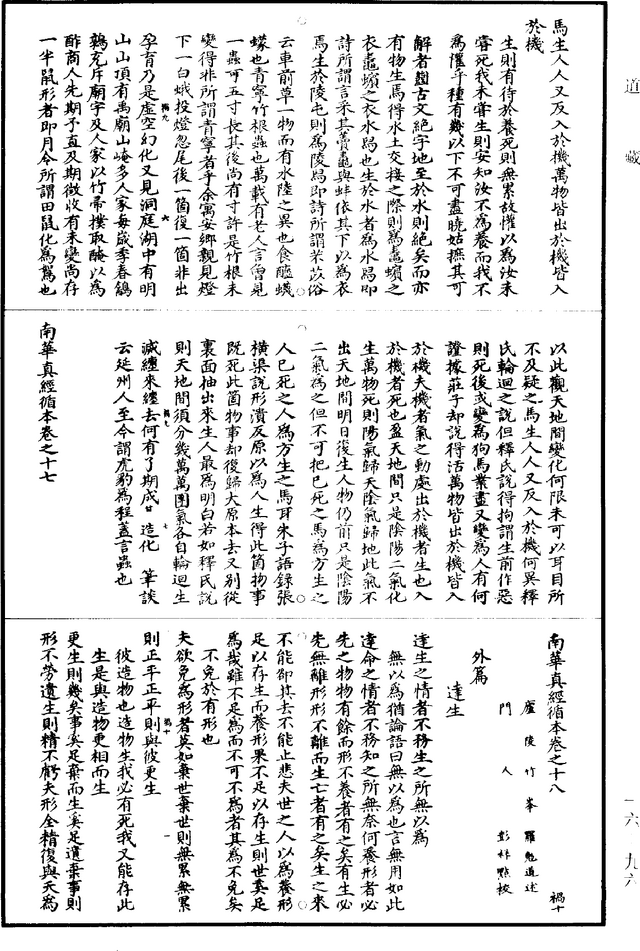 道藏
馬生人人又反入於機萬物皆出於機皆入
於機
生則有待於養死則無累故懽以為汝未
嘗死我未嘗生則安知汝不為養而我不
為懽乎種有幾以下不可盡曉姑撫其可
解者題古文絕字地至於水則絕矣而亦
有物生焉得水土交接之際則為鼃蠙之
衣鼃蠙之衣水舄也生於水者為水舄即
詩所謂言采其藚鼃與蚌依其下以為衣
焉生於陵屯則為陵舄即詩所謂芣苡俗
云車前草一物而有水陸之異也食醯蠛
蠓也青寧竹根蟲也萬載有老人言曾見
一蟲可五寸長其後尚有寸許是竹根未
變得非所謂青寧者乎余寓安鄉親見燈
下一白蛾投燈忽尾後一箇復一箇非出
孕育乃是虛空幻化又見洞庭湖中有明
山山頂有禹廟山埯多人家每歲季春鷂
鶉充斥廟宇及人家以竹帚撲取醃以為
酢商人先期予直及期徵收有未變尚存
一半鼠形者即月令所謂田鼠化為鴽也
以此觀天地間變化何限未可以耳目所
不及疑之馬生人人又反入於機何異釋
氏輪迴之說但釋氏說得拘謂生前作惡
則死後或變為狗馬業盡又變為人有何
證據莊子却說得活萬物皆出於機皆入
於機夫機者氣之動處出於機者生也入
於機者死也盈天地間只是陰陽二氣化
生萬物死則陽氣歸天陰氣歸地此氣不
出天地間明日復生人物仍前只是陰陽
二氣為之但不可把已死之馬為方生之
人已死之人為方生之馬耳朱子語錄張
橫渠說形潰反原以為人生得此箇物事
既死此箇物事却復歸大原本去又別從
裏面抽出來生人最為明白若如釋氏說
則天地間須分幾萬萬團氣各自輪迴生
滅纏來纏去何有了期成甘造化筆談
云延州人至今謂虎豹為程蓋言蟲也
南華真經循本卷之十七
南華真經循本卷之十八 禍十
廬陵竹峯羅勉道述
門人彭祥點校
外篇
達生
達生之情者不務生之所無以為
無以為猶論語曰無以為也言無用如此
達命之情者不務知之所無奈何養形者必
先之物物有餘而形不養者有之矣有生必
先無離形形不離而生亡者有之矣生之來
不能卻其去不能止悲夫世之人以為養形
足以存生而養形果不足以存生則世奚足
為哉雖不足為而不可不為者其為不免矣
不免於有形也
夫欲免為形者莫如棄世棄世則無累無累
則正平正平則與彼更生
彼造物也造物生我必有死我又能存此
生是與造物更相而生
更生則幾矣事奚足棄而生奚足遺棄事則
形不勞遺生則精不虧夫形全精復與天為
一六 九六